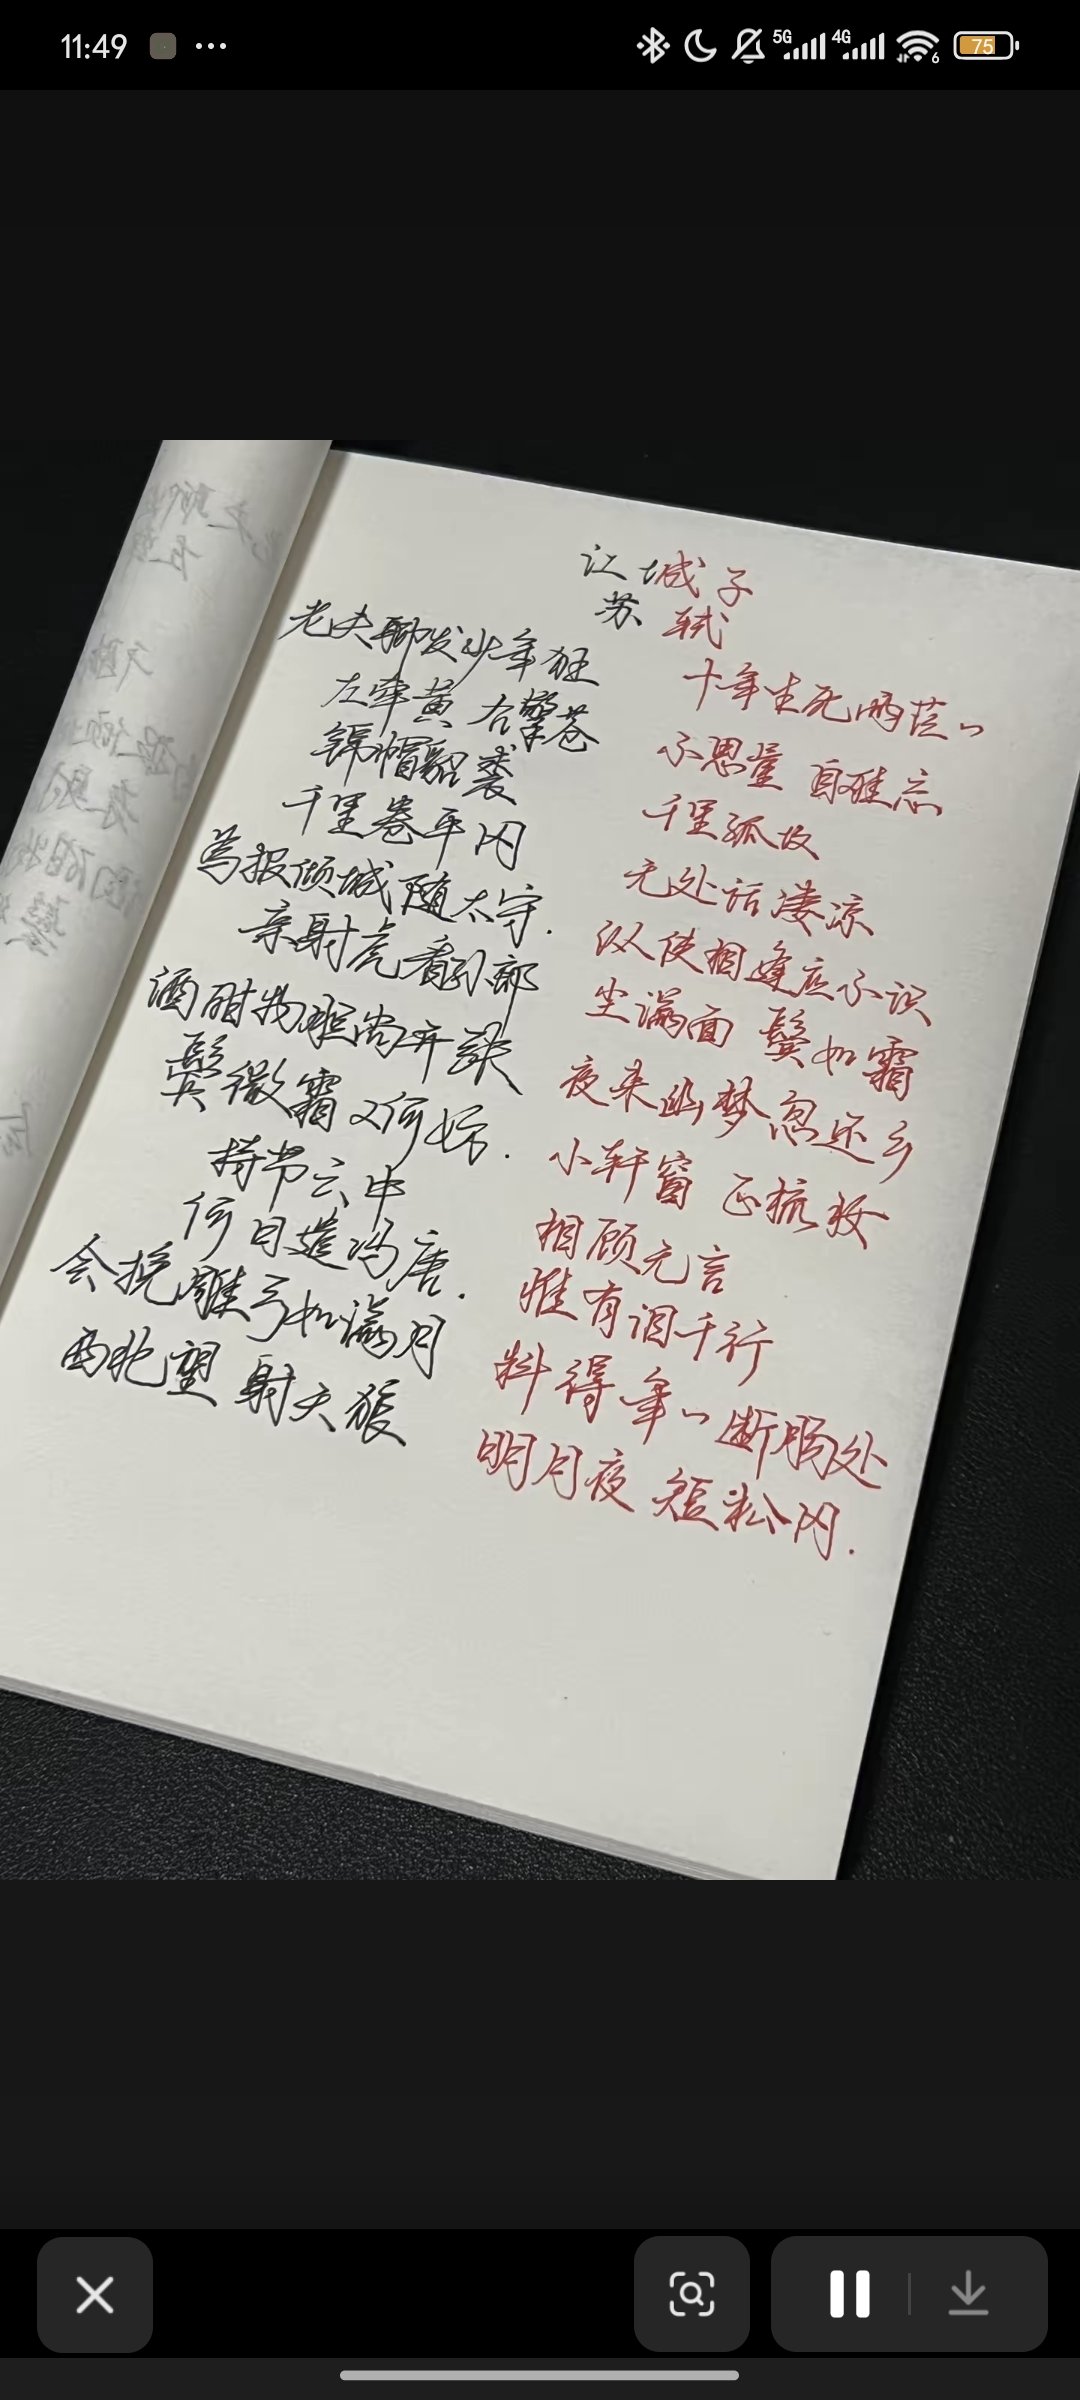 11:49
5G
4G
6
75
江城子
苏轼
老夫聊发少年狂
左牵黄 右擎苍
锦帽貂裘
千里卷平冈
为报倾城随太守.
亲射虎看孙郎
酒酣胸胆尚开张
鬓微霜又何妨.
持节云中
何日遣冯唐.
会挽雕弓如满月
西北望 射天狼
十年生死两茫々
不思量 自难忘
千里孤坟
无处话凄凉
纵使相逢应不识
尘满面 鬓如霜
夜来幽梦忽还乡
小轩窗 正梳妆
相顾无言
惟有泪千行
料得年々断肠处
明月夜 短松冈.